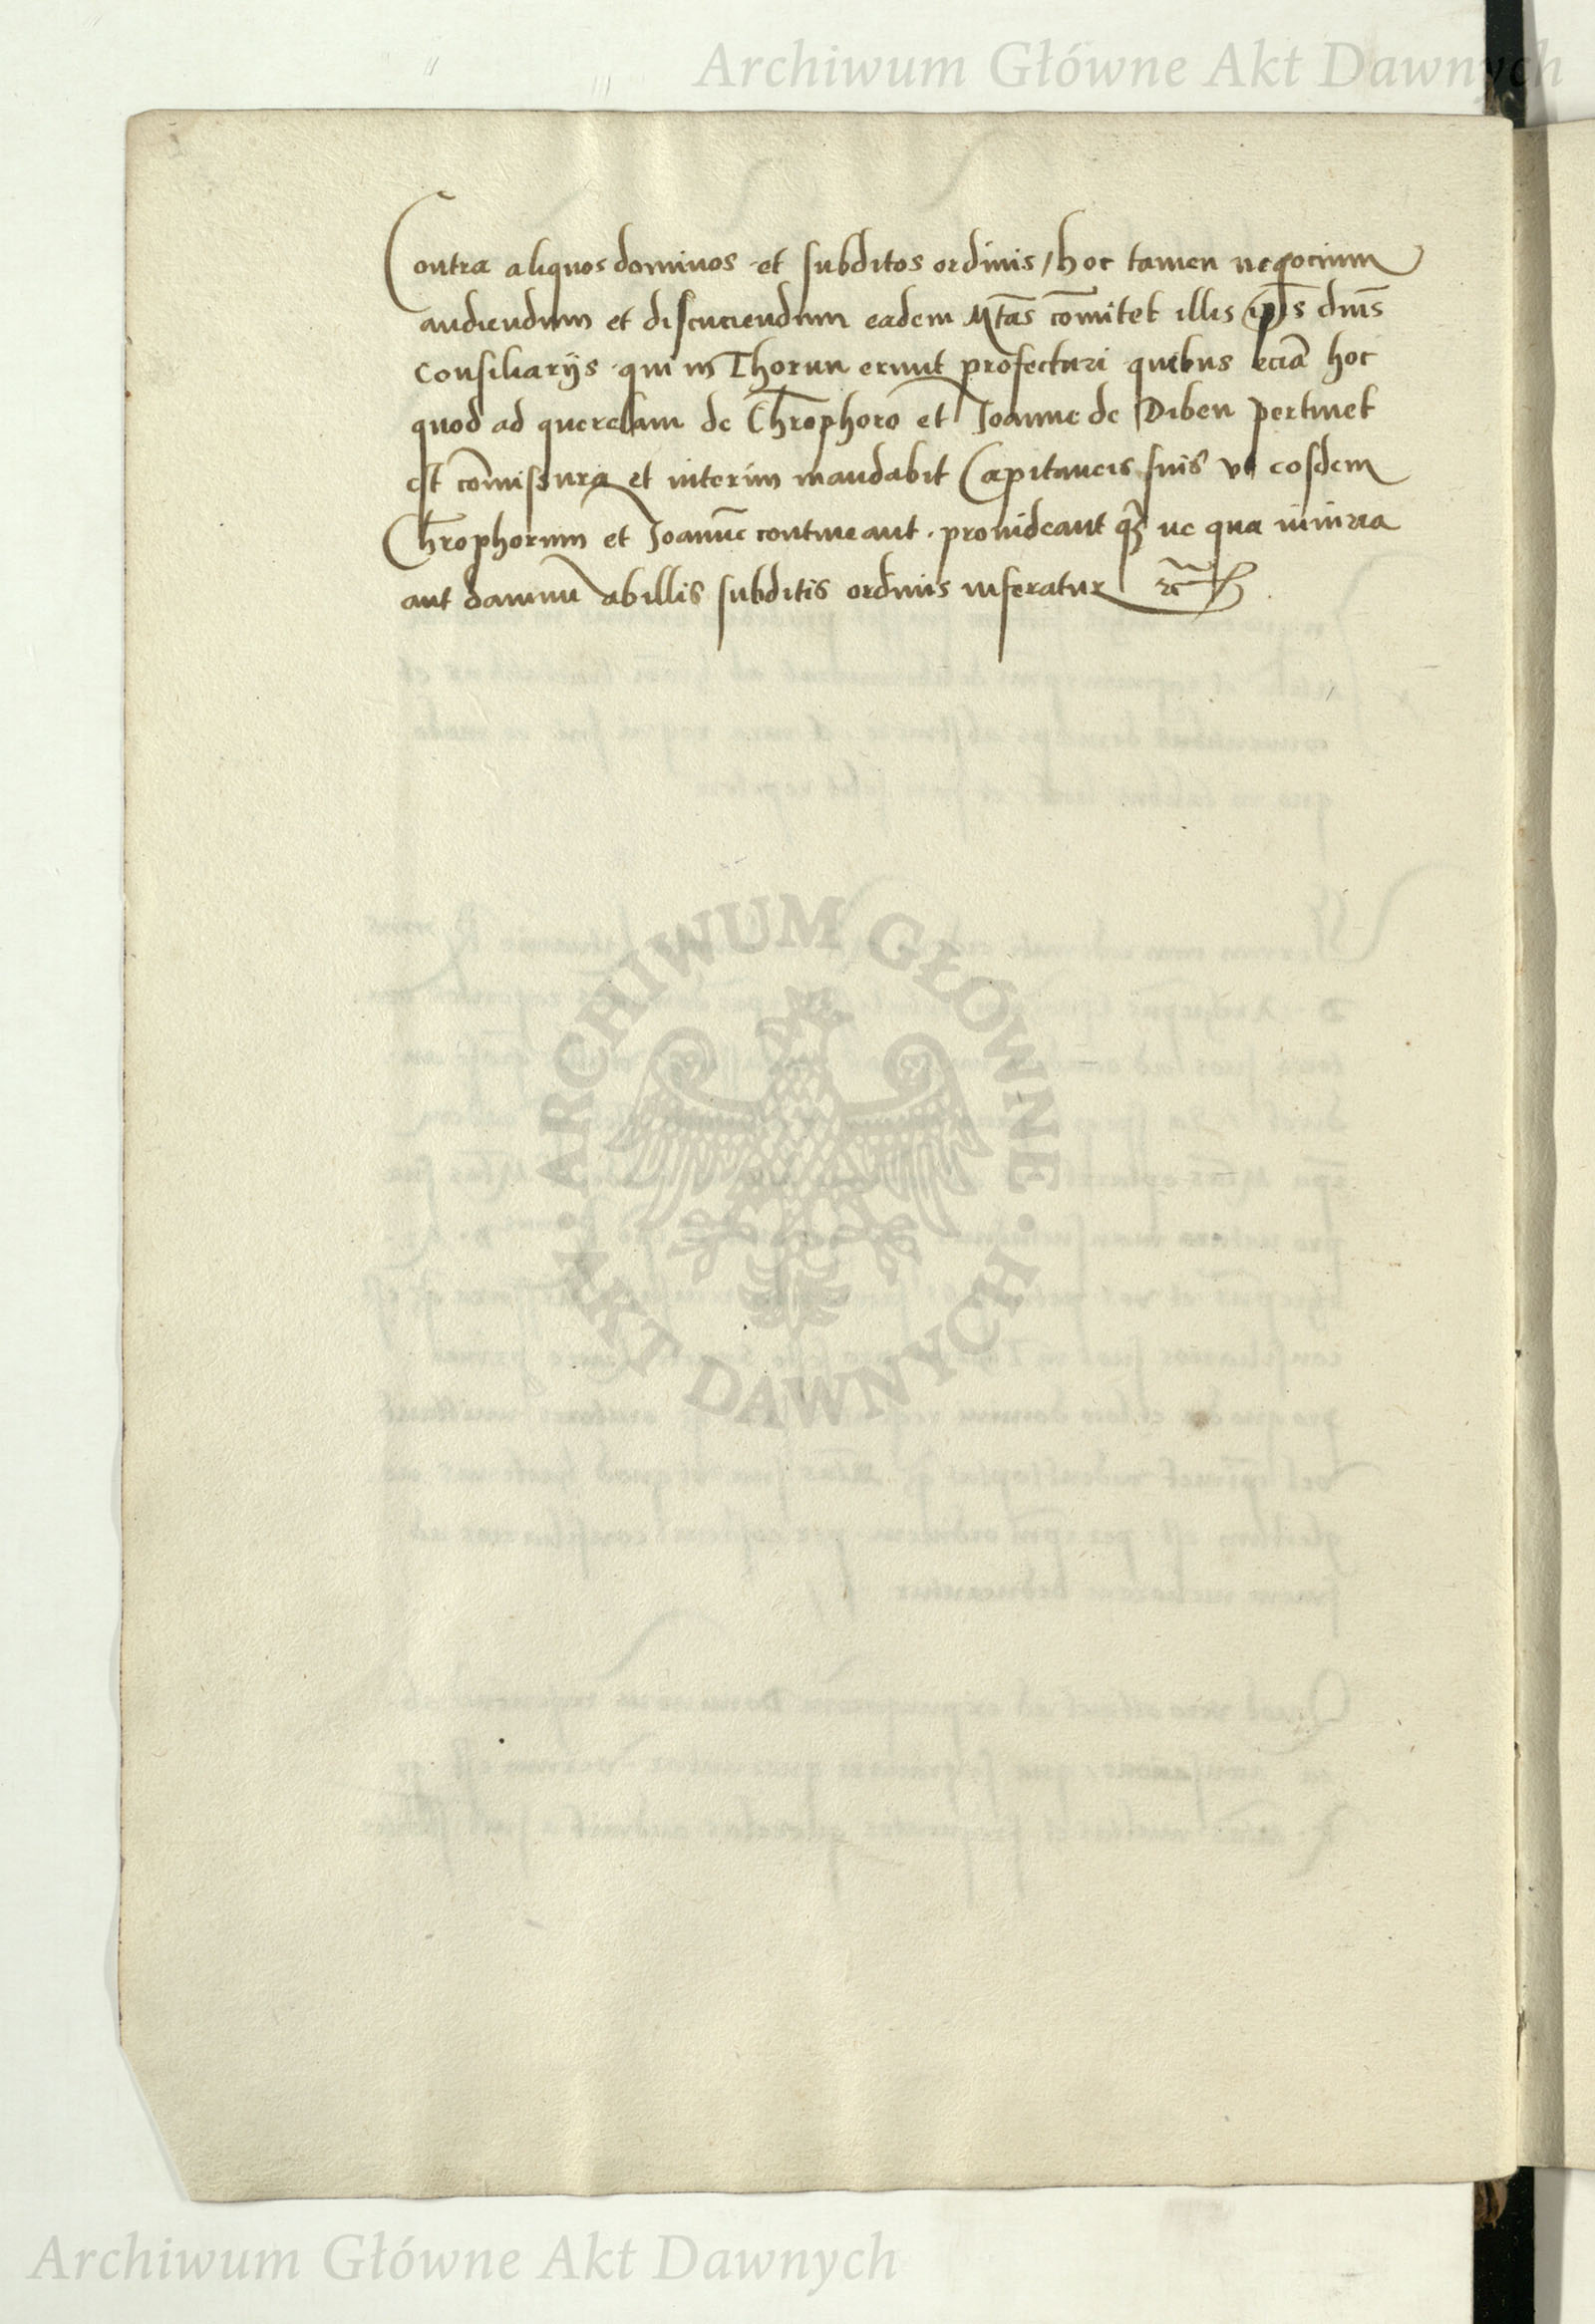 Archiwum Główne Akt Dawnych
Contra aliquos dominos et subditos ordinis / hoc tamen negocium
audiendum et discuciendum eadem Mtas comitet illis dnis
Consiliarijs qui in Thorun erunt profecturi quibus eciā hoc
quod ad querelam de Chrophoro et Joanne de Diben pertinet
est comissura et interim mandabit Capitaneis suis vt eosdem
Chrophorum et Joannē contineant . prouideant qz ne qua iniuria
aut damnū ab illis subditis ordinis inferatur
ARCHIWUM GŁÓWNE · AKT DAWNYCH ·
Archiwum Główne Akt Dawnych